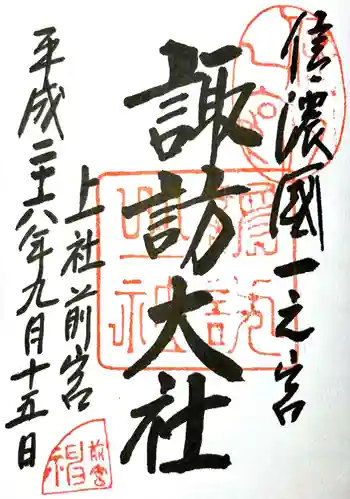 信濃國一之宮
諏訪大社
上社前宮
平成二十六年九月十五日
前宮